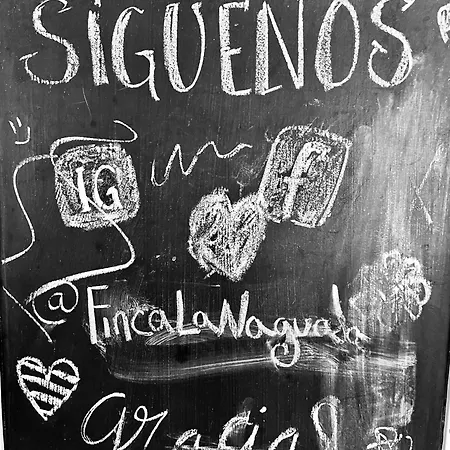 SÍGUENOS
IG f
@FincaLaNaguala
Gracias